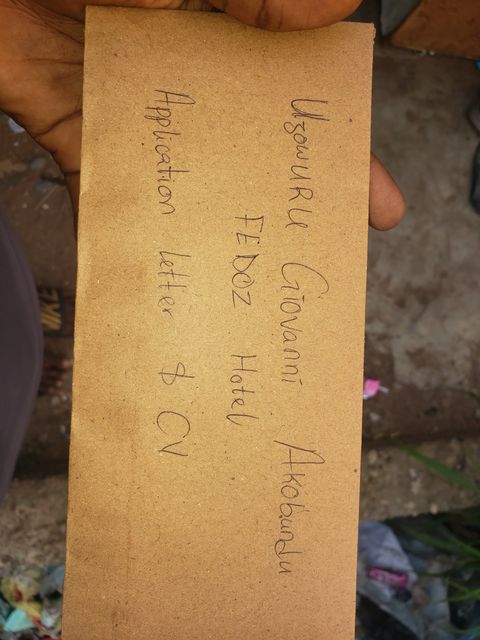 UzowuRu Giovanni Akobundu
FEDOZ Hotel
Application letter & CV